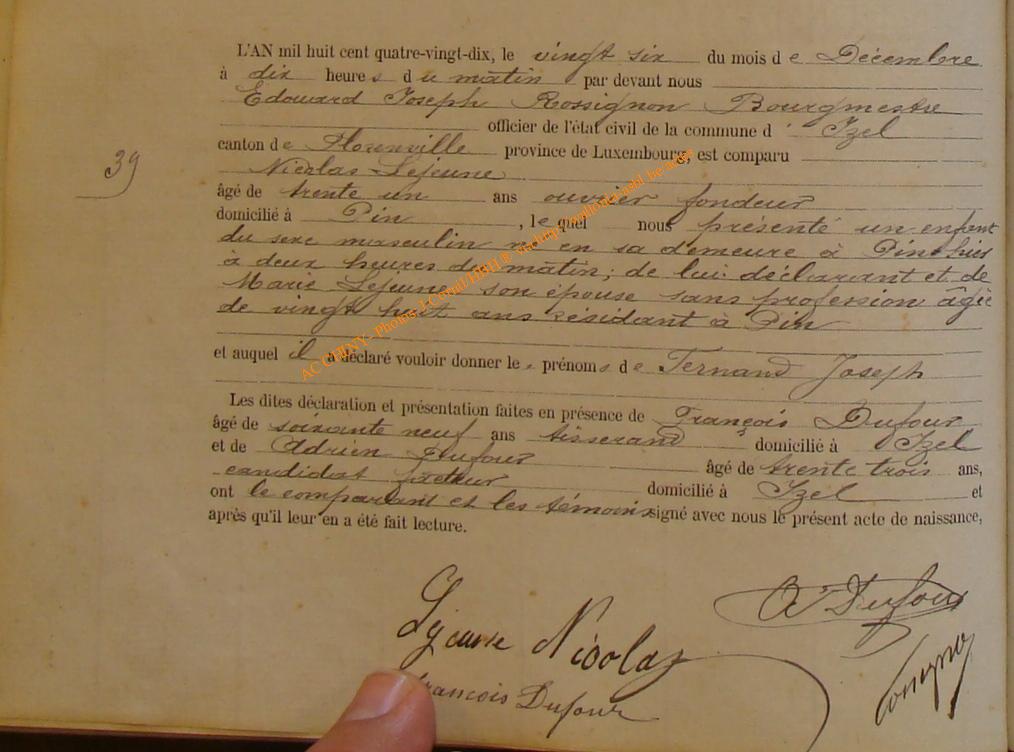 L'AN mil huit cent quatre-vingt-dix, le vingt six du mois de Décembre
à dix heures du matin par devant nous
Edouard Joseph Rossignon Bourgmestre
officier de l'état civil de la commune d' Izel
canton de Florenville province de Luxembourg, est comparu
39
Nicolas Lejeune
âgé de trente un ans ouvrier fondeur
domicilié à Pin, lequel nous présenté un enfant
du sexe masculin né en sa demeure à Pin hier
à deux heures du matin; de lui déclarant et de
Marie Lejeune son épouse sans profession âgée
de vingt huit ans résidant à Pin
et auquel il a déclaré vouloir donner les prénoms de Fernand Joseph
Les dites déclaration et présentation faites en présence de François Dufour
âgé de soixante neuf ans tisserand domicilié à Izel
et de Adrien Dufour âgé de trente trois ans,
candidat facteur domicilié à Izel et
ont le comparant et les témoins signé avec nous le présent acte de naissance,
après qu'il leur en a été fait lecture.
AC CHINY - Photos J.Cornil/HBH ©
Lejeune Nicolas
A Dufour
François Dufour